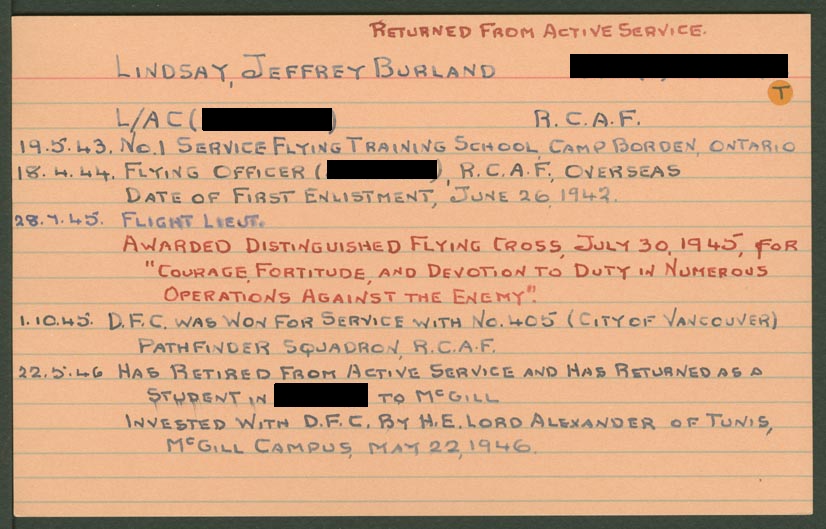 RETURNED FROM ACTIVE SERVICE.
LINDSAY, JEFFREY BURLAND
T
L/AC ( ) R.C.A.F.
19.5.43. No.1 SERVICE FLYING TRAINING SCHOOL, CAMP BORDEN, ONTARIO
18.4.44. FLYING OFFICER ( ), R.C.A.F., OVERSEAS
DATE OF FIRST ENLISTMENT, JUNE 26, 1942.
28.7.45. FLIGHT LIEUT.
AWARDED DISTINGUISHED FLYING CROSS, JULY 30, 1945, FOR
"COURAGE, FORTITUDE, AND DEVOTION TO DUTY IN NUMEROUS
OPERATIONS AGAINST THE ENEMY".
1.10.45. D.F.C. WAS WON FOR SERVICE WITH No. 405 (CITY OF VANCOUVER)
PATHFINDER SQUADRON, R.C.A.F.
22.5.46 HAS RETIRED FROM ACTIVE SERVICE AND HAS RETURNED AS A
STUDENT IN TO McGILL
INVESTED WITH D.F.C. BY H.E. LORD ALEXANDER OF TUNIS,
McGILL CAMPUS, MAY 22, 1946.